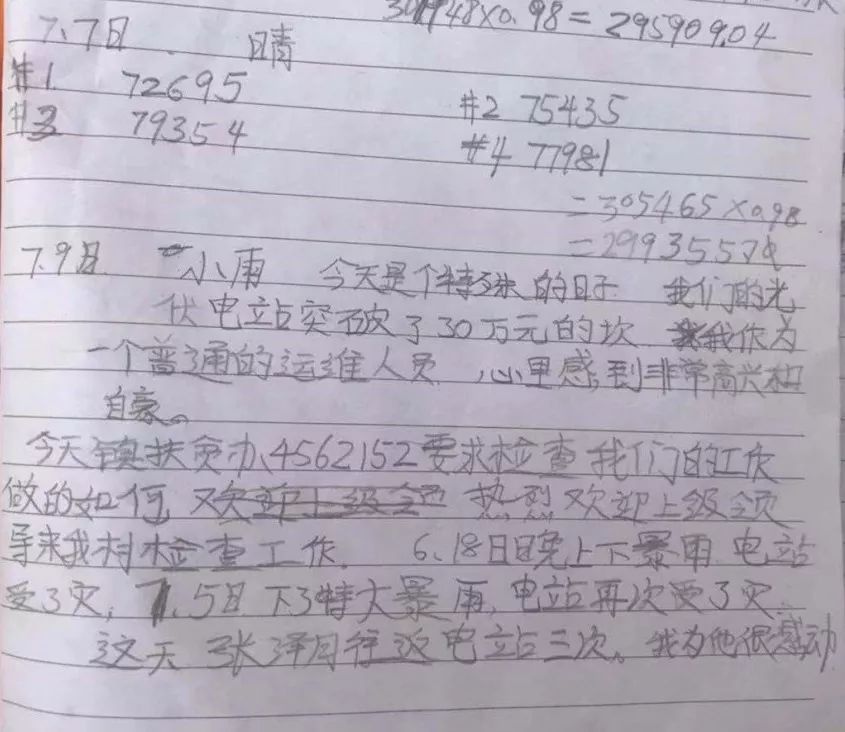 301948×0.98=295909.04
7.7日 晴
#1 72695
#2 75435
#3 79354
#4 77981
=305465×0.98
=299355.7
7.9日 小雨 今天是个特殊的日子 我们的光
伏电站突破了30万元的坎 我作为
一个普通的运维人员 心里感到非常高兴和
自豪。
今天镇扶贫办、4562152要求检查我们的工作
做的如何, 欢迎上级领 热烈欢迎上级领
导来我村检查工作. 6.18日晚上下暴雨 电站
受了灾, 7.5日下了特大暴雨, 电站再次受了灾.
这天 张泽月往返电站三次。我为他很感动